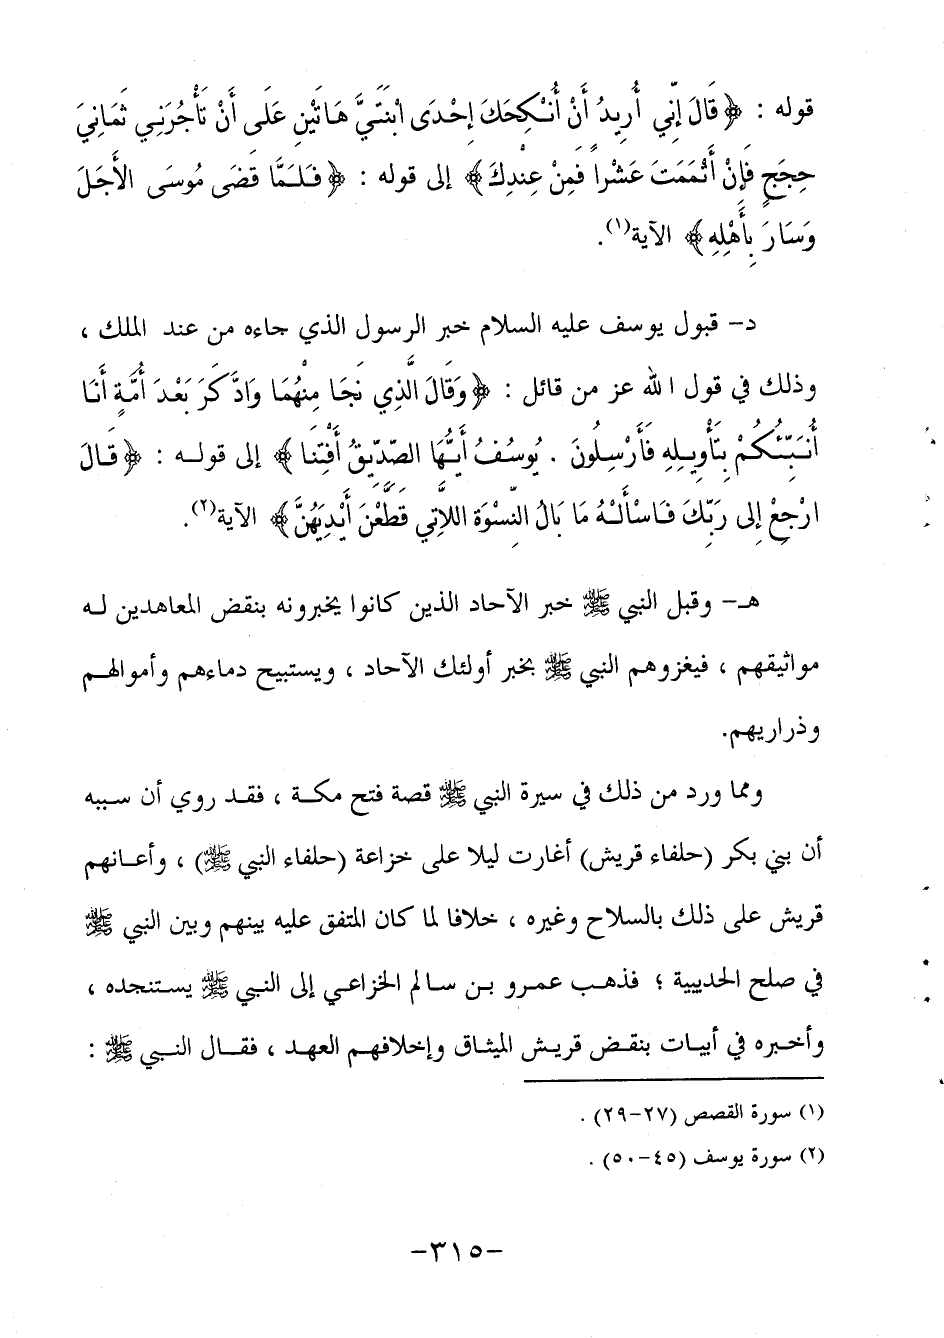 قوله : ﴿قَالَ إِنِّي أُرِيدُ أَنْ أُنْكِحَكَ إِحْدَى ابْنَتَيَّ هَاتَيْنِ عَلَى أَنْ تَأْجُرَنِي ثَمَانِيَ
حِجَجٍ فَإِنْ أَتْمَمْتَ عَشْراً فَمِنْ عِنْدِكَ﴾ إلى قوله : ﴿فَلَمَّا قَضَى مُوسَى الأَجَلَ
وَسَارَ بِأَهْلِهِ﴾ الآية(١).
د– قبول يوسف عليه السلام خبر الرسول الذي جاءه من عند الملك ،
وذلك في قول الله عز من قائل : ﴿وَقَالَ الَّذِي نَجَا مِنْهُمَا وَادَّكَرَ بَعْدَ أُمَّةٍ أَنَا
أُنَبِّئُكُمْ بِتَأْوِيلِهِ فَأَرْسِلُونَ . يُوسُفُ أَيُّهَا الصِّدِّيقُ أَفْتِنَا﴾ إلى قوله : ﴿قَالَ
ارْجِعْ إِلى رَبِّكَ فَاسْأَلْهُ مَا بَالُ النِّسْوَةِ اللاَّتِي قَطَّعْنَ أَيْدِيَهُنَّ﴾ الآية(٢).
هـ– وقبل النبي ﷺ خبر الآحاد الذين كانوا يخبرونه بنقض المعاهدين له
مواثيقهم ، فيغزوهم النبي ﷺ بخبر أولئك الآحاد ، ويستبيح دماءهم وأموالهم
وذراريهم.
ومما ورد من ذلك في سيرة النبي ﷺ قصة فتح مكة ، فقد روي أن سببه
أن بني بكر (حلفاء قريش) أغارت ليلا على خزاعة (حلفاء النبي ﷺ) ، وأعانهم
قريش على ذلك بالسلاح وغيره ، خلافا لما كان المتفق عليه بينهم وبين النبي ﷺ
في صلح الحديبية ؛ فذهب عمرو بن سالم الخزاعي إلى النبي ﷺ يستنجده ،
وأخبره في أبيات بنقض قريش الميثاق وإخلافهم العهد ، فقال النبي ﷺ :
(١) سورة القصص (٢٧–٢٩) .
(٢) سورة يوسف (٤٥–٥٠) .
–٣١٥–